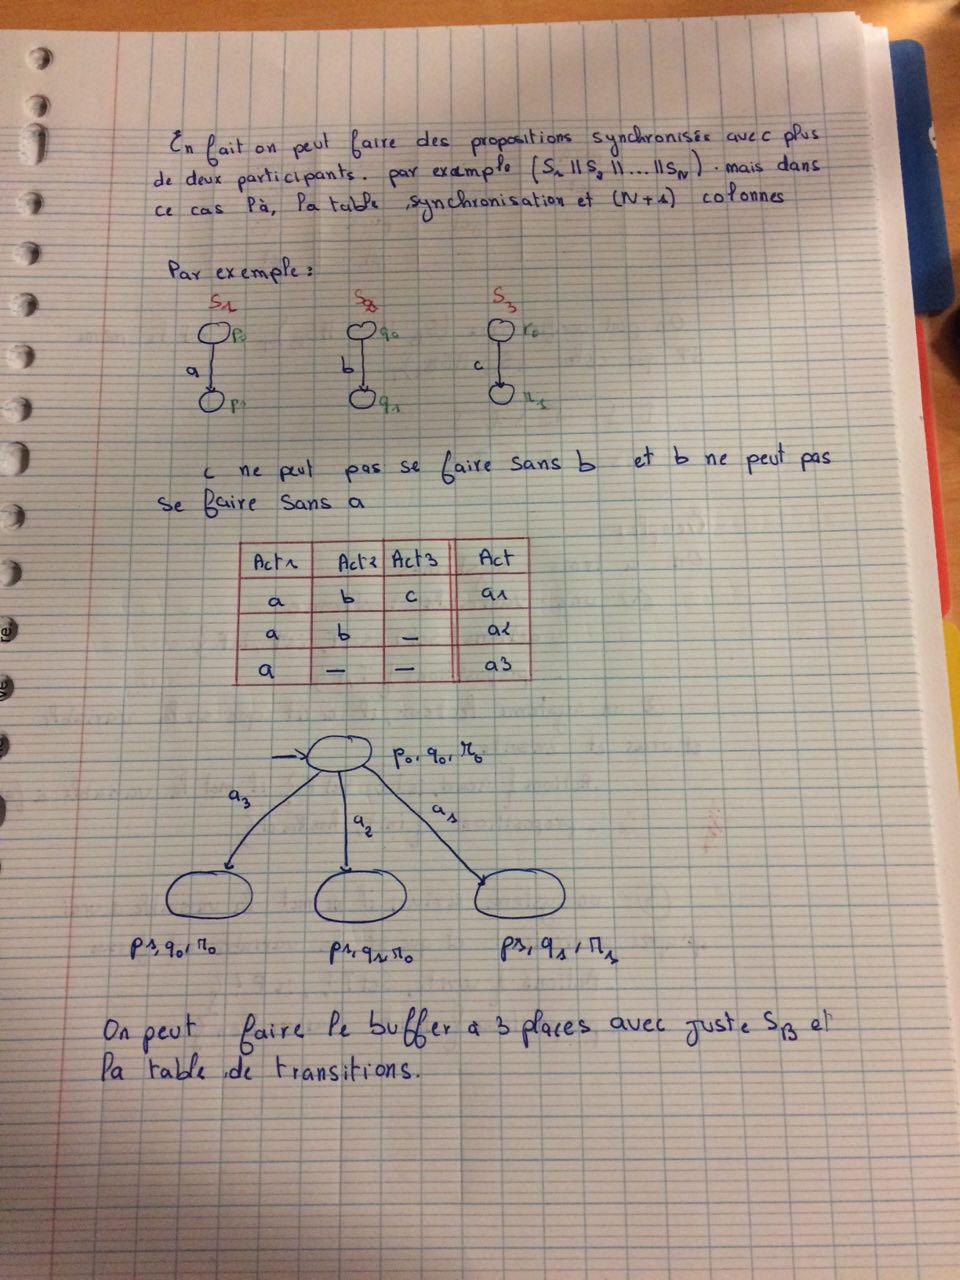 En fait on peut faire des propositions synchronisée avec plus
de deux participants. par exemple (S₁ || S₂ || ... || S_N). mais dans
ce cas là, la table synchronisation et (N+1) colonnes
Par exemple :
S₁ S₂ S₃
p₀ q₀ r₀
a b c
p₁ q₁ r₁
c ne peut pas se faire sans b et b ne peut pas
se faire sans a
Act1 Act2 Act3 Act
a b c a1
a b — a2
a — — a3
p₀, q₀, r₀
a₃ a₂ a₁
p₁, q₀, r₀ p₁, q₁, r₀ p₁, q₁, r₁
On peut faire le buffer a 3 places avec juste S_B et
la table de transitions.